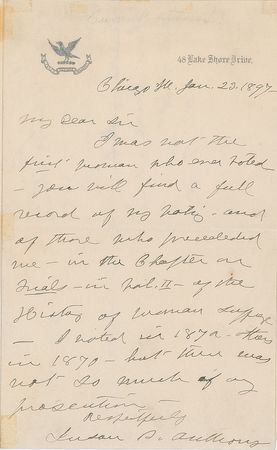 48 Lake Shore Drive.
Chicago Ill. Jan. 22. 1897
My dear Sir
I was not the
first woman who ever voted
- you will find a full
record of my voting - and
of those who preceded
me - in the Chapter on
Trials - in Vol. II - of the
History of Woman Suffrage
- I voted in 1872 -
in 1870 - but there was
not so much of my
prosecution -
Respectfully
Susan B. Anthony